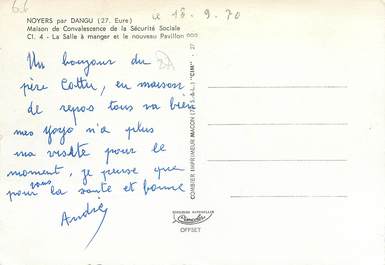 66
le 18.9.70
NOYERS par DANGU (27. Eure)
Maison de Convalescence de la Sécurité Sociale
Cl. 4 - La Salle à manger et le nouveau Pavillon
Un bonjour du
père Cottu, en maison
de repos tous va bien
mes yoyo n'a plus
ma visite pour le
moment, je pense que
vous
pour la santé et bonne
André
COMBIER IMPRIMEUR MACON (71 S.-&-L.) "CIM"
27
Combier
OFFSET